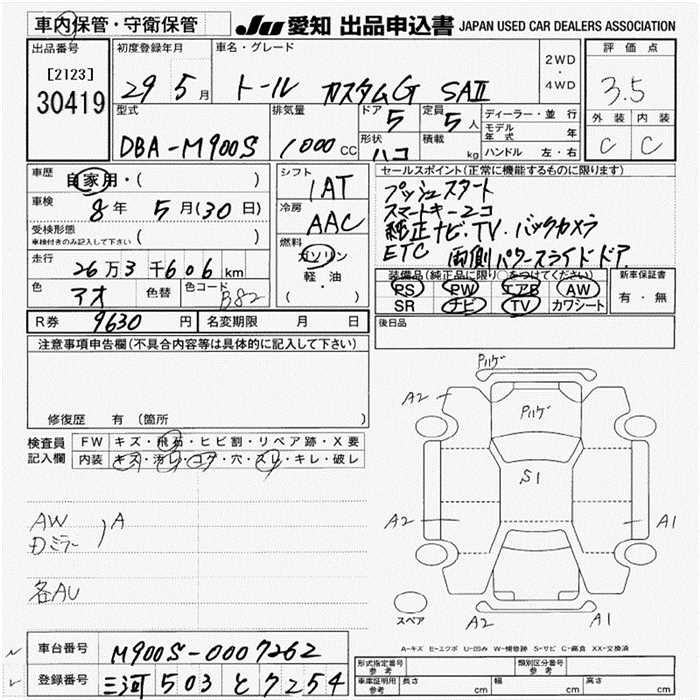 車内保管・守衛保管
JU 愛知 出品申込書 JAPAN USED CAR DEALERS ASSOCIATION
出品番号
[2123]
30419
初度登録年月
29 5 月
車名・グレード
トール カスタムG SAⅡ
2WD
・
4WD
評価点
3.5
外装 内装
C C
型式
DBA-M900S
排気量
1000 CC
ドア
5
定員
5 人
形状
ハコ
積載
kg
ディーラー・並行
モデル年式 年
ハンドル 左・右
車歴
自家用・( )
車検
8年 5月(30日)
受検形態
車検付きのみ記入して下さい ( )
走行
26万3千606km
色
アオ
色替
色コード
B82
シフト
IAT
冷房
AAC
燃料
ガソリン
軽・油
( )
R券 9630 円
名変期限 月 日
セールスポイント(正常に機能するものに限ります)
プッシュスタート
スマートキー2コ
純正ナビ.TV.バックカメラ
ETC 両側パワースライドドア
装備品(純正品に限り○をつけてください)
PS PW エアB AW
SR ナビ TV カワシート
新車保証書
有・無
後日品
注意事項申告欄(不具合内容等は具体的に記入して下さい)
修復歴 有 (箇所 )
検査員記入欄
FW キズ・飛石・ヒビ割・リペア跡・X要
内装 キズ・汚レ・コゲ・穴・スレ・キレ・破レ
AW
A
各AU
Pハゲ
A2
Pハゲ
S1
A2
A1
A2
A1
スペア
A-キズ E-エクボ U-凹み W-補修跡 S-サビ C-腐食 XX-交換済
車台番号 M900S-0007262
登録番号 三河 503 と 7254
形式指定番号 参考
類別区分番号 参考
車庫証明用 参考 長さ cm 幅 cm 高さ cm